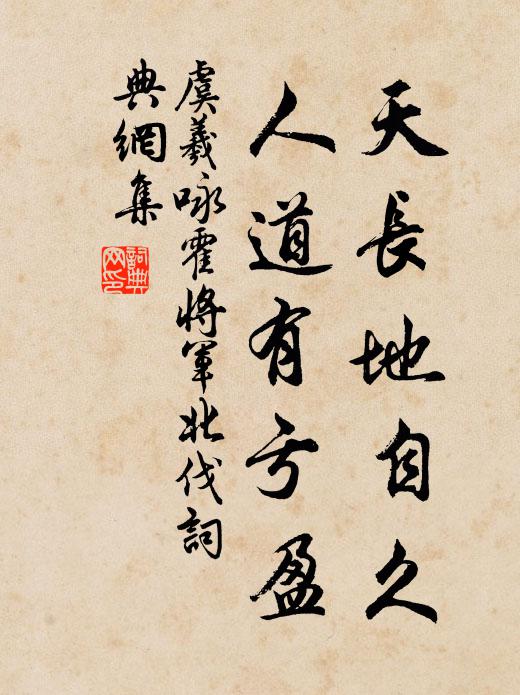 天長地自久
人道有亏盈
虞羲咏霍將軍北伐詞
典網集
詞典
网印